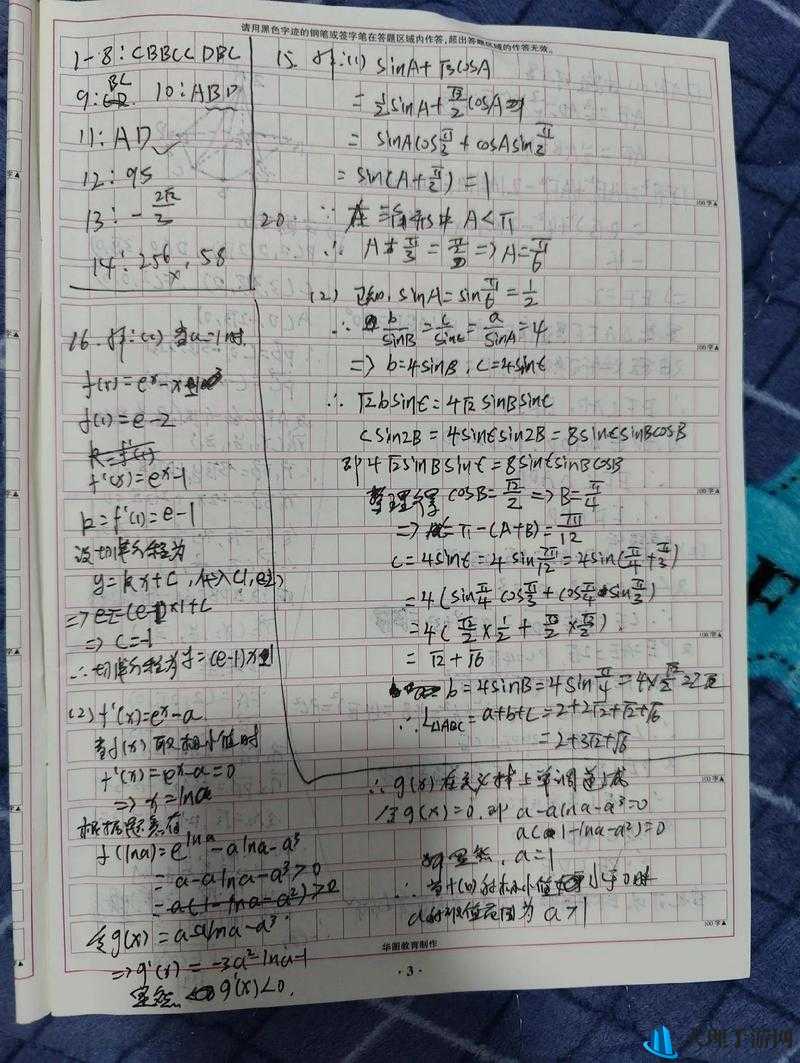 请用黑色字迹的钢笔或签字笔在答题区域内作答,超出答题区域的作答无效。
1-8: CBBCC DBC
9: BC 10: ABD
11: AD
12: 95
13: -2√2/3
14: 256, 58
15. 解:(1) sinA+√3cosA
=½sinA+√3/2cosA
= sinAcosπ/3 + cosAsinπ/3
= sin(A+π/3) = 1
20 ∵ 在三角形中 A<π
∴ A+π/3 = π/2 => A=π/6
(2) 已知, sinA=sinπ/6=1/2
∴ b/sinB = c/sinC = a/sinA = 4
=> b=4sinB, c=4sinC
∴ √2bsinC=4√2 sinBsinC
csin2B = 4sinCsin2B = 8sinCsinBcosB
即4√2sinBsinC=8sinCsinBcosB
整理得 cosB=√2/2 => B=π/4
=> π-(A+B)=7π/12
c=4sinC=4sin7π/12=4sin(π/4+π/3)
=4(sinπ/4cosπ/3+cosπ/4sinπ/3)
=4(√2/2×1/2+√2/2×√3/2)
=√2+√6
b=4sinB=4sinπ/4=4×√2/2=2√2
∴ L△ABC=a+b+c=2+2√2+√2+√6
=2+3√2+√6
16. 解:(1) 当a=1时,
f(x)=e^x-x-1
f(1)=e-2
k=f'(1)
f'(x)=e^x-1
k=f'(1)=e-1
设切线方程为
y=kx+c, 代入(1,e-2)
=> e-2=(e-1)×1+c
=> c=-1
∴切线方程为y=(e-1)x-1
(2) f'(x)=e^x-a
当f(x)取极小值时
f'(x)=e^x-a=0
=> x=lna
根据题意有
f(lna)=e^lna-alna-a³
=a-alna-a³>0
=a(1-lna-a²)>0
令g(x)=a-alna-a³
=>g'(x)=-3a²-lna-1
显然 g'(x)<0.
∴ g(x)在定义域上单调递减
令g(x)=0,即a-alna-a³=0
a(1-lna-a²)=0
显然, a=1
∴ 当f(x)的极小值小于0时
a的取值范围为 a>1
100字▲
华图教育制作
·3·
大雕手游网